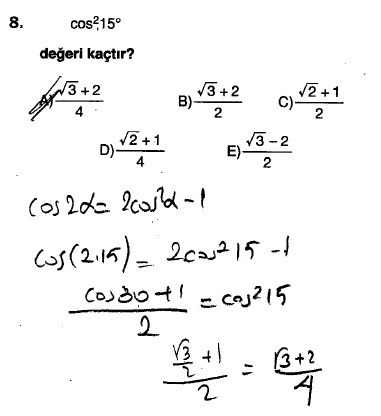 8. cos²15°
değeri kaçtır?
A) (√3 + 2)/4 B) (√3 + 2)/2 C) (√2 + 1)/2
D) (√2 + 1)/4 E) (√3 − 2)/2
cos2α = 2cos²α − 1
cos(2.15) = 2cos²15 − 1
(cos30 + 1)/2 = cos²15
(√3/2 + 1)/2 = (√3 + 2)/4